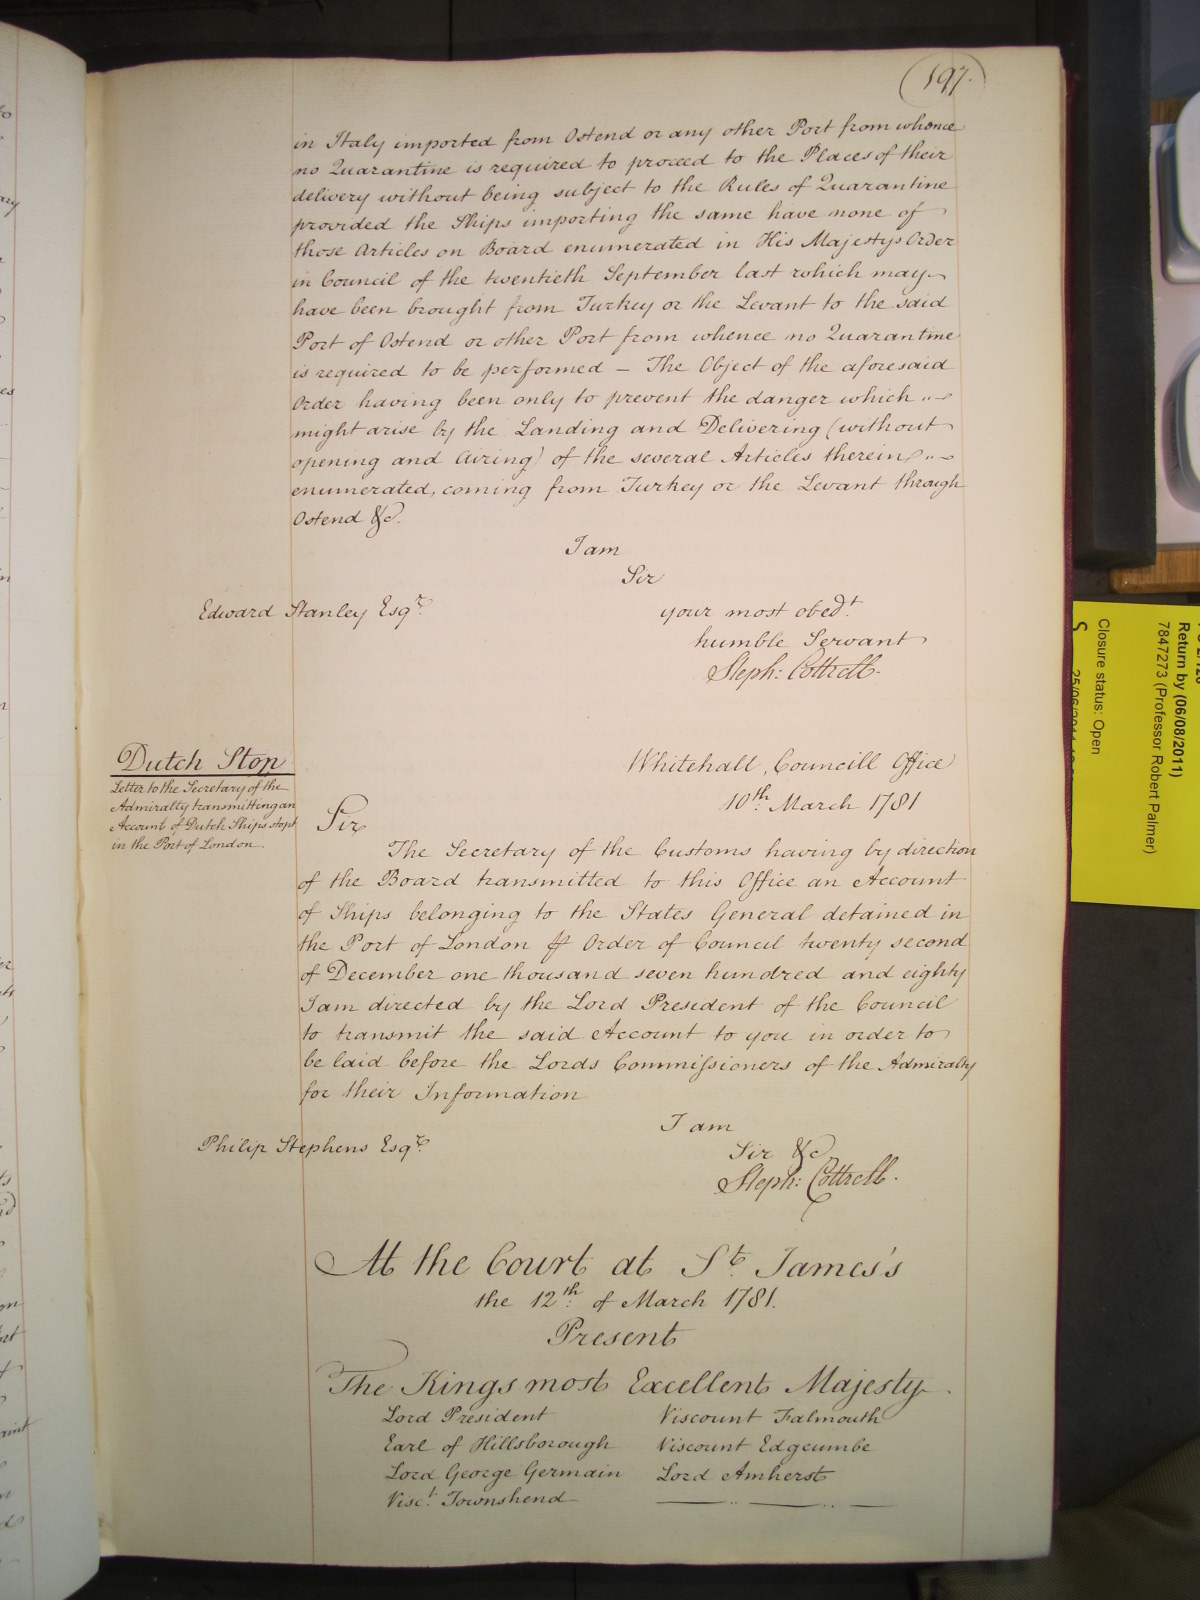 197.
in Italy imported from Ostend or any other Port from whence
no Quarantine is required to proceed to the Places of their
delivery without being subject to the Rules of Quarantine
provided the Ships importing the same have none of
those Articles on Board enumerated in His Majestys Order
in Council of the twentieth September last which may
have been brought from Turkey or the Levant to the said
Port of Ostend or other Port from whence no Quarantine
is required to be performed – The Object of the aforesaid
Order having been only to prevent the danger which
might arise by the Landing and Delivering (without
opening and Airing) of the several Articles therein
enumerated, coming from Turkey or the Levant through
Ostend &c.
I am
Sir
Edward Stanley Esqr.
your most obedt.
humble Servant
Steph: Cottrell.
Dutch Stop
Letter to the Secretary of the
Admiralty transmitting an
Account of Dutch Ships stopt
in the Port of London.
Whitehall, Councill Office
10th March 1781
Sir
The Secretary of the Customs having by direction
of the Board transmitted to this Office an Account
of Ships belonging to the States General detained in
the Port of London Order of Council twenty second
of December one thousand seven hundred and eighty
I am directed by the Lord President of the Council
to transmit the said Account to you in order to
be laid before the Lords Commissioners of the Admiralty
for their Information
I am
Philip Stephens Esqr.
Sir &c
Steph: Cottrell.
At the Court at St. James's
the 12th of March 1781.
Present
The Kings most Excellent Majesty
Lord President
Viscount Falmouth
Earl of Hillsborough
Viscount Edgcumbe
Lord George Germain
Lord Amherst
Visct. Townshend
Return by (06/08/2011)
7847273 (Professor Robert Palmer)
Closure status: Open
S